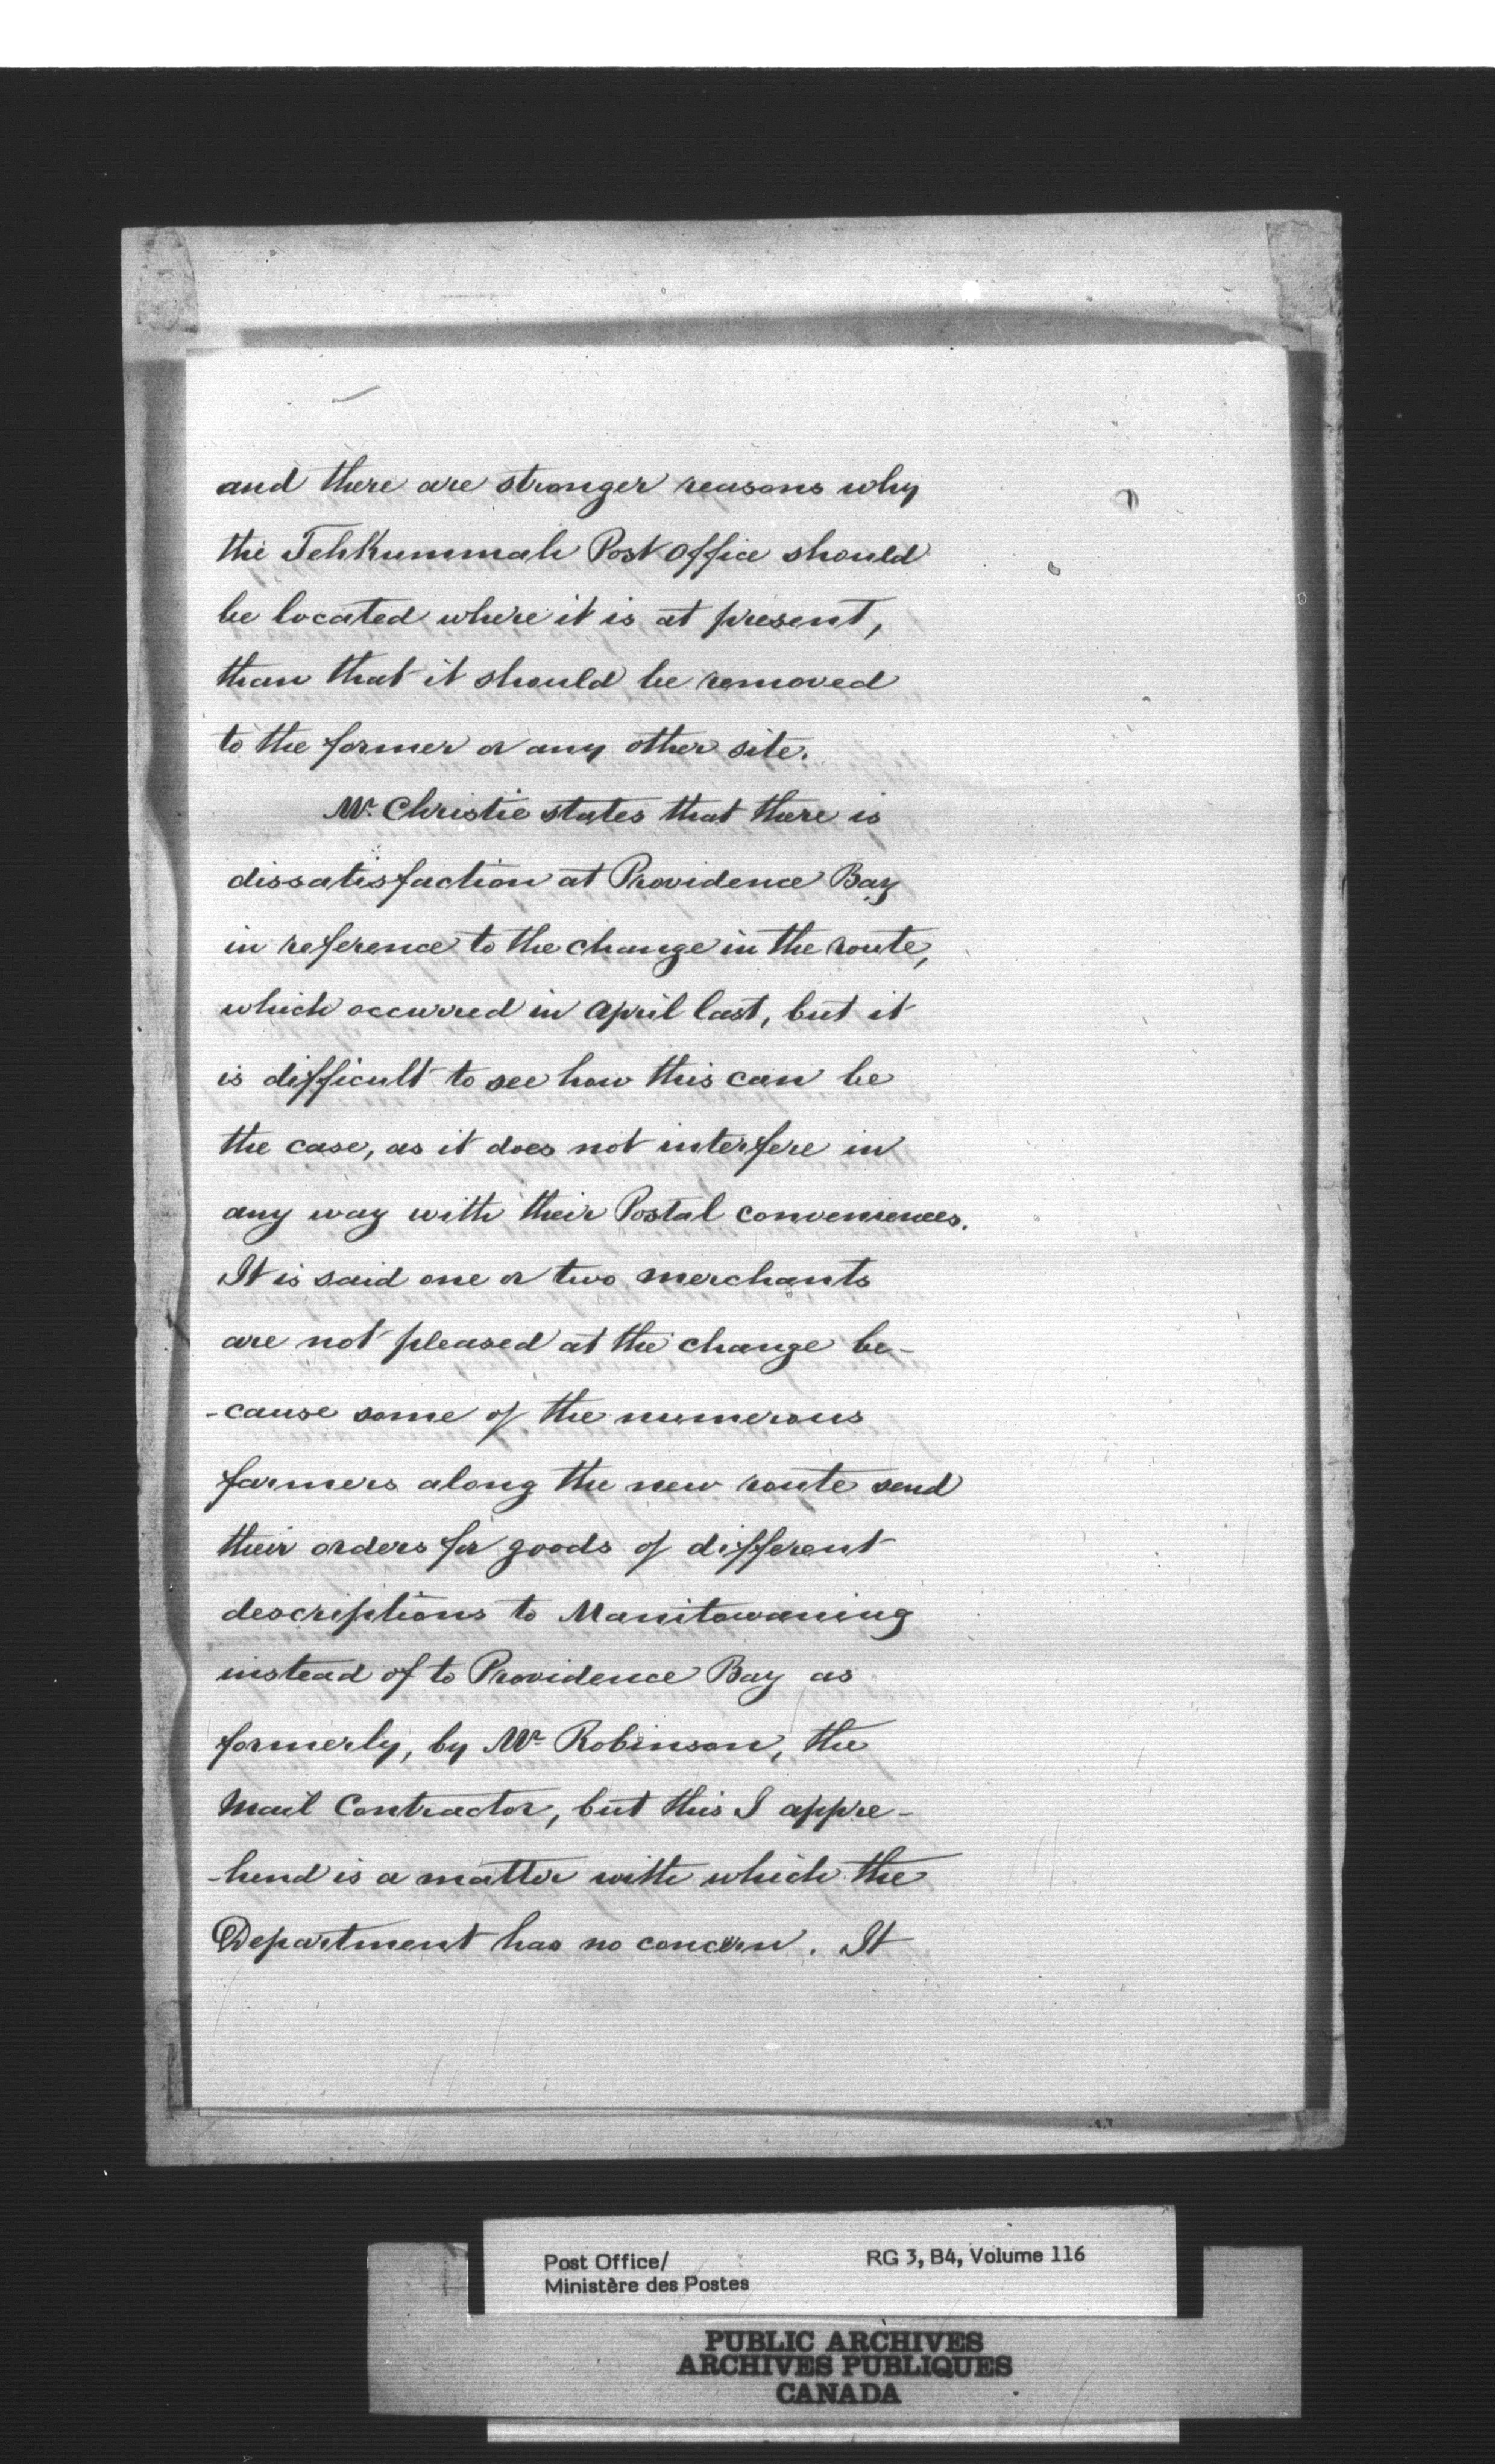 and there are stronger reasons why
the TehKummah Post Office should
be located where it is at present,
than that it should be removed
to the former or any other site.
Mr. Christie states that there is
dissatisfaction at Providence Bay
in reference to the change in the route,
which occurred in April last, but it
is difficult to see how this can be
the case, as it does not interfere in
any way with their Postal conveniences.
It is said one or two merchants
are not pleased at the change be-
-cause some of the numerous
farmers along the new route send
their orders for goods of different
descriptions to Manitowaning
instead of to Providence Bay as
formerly, by Mr. Robinson, the
Mail Contractor, but this I appre-
-hend is a matter with which the
Department has no concern. It
Post Office/
Ministère des Postes
RG 3, B4, Volume 116
PUBLIC ARCHIVES
ARCHIVES PUBLIQUES
CANADA